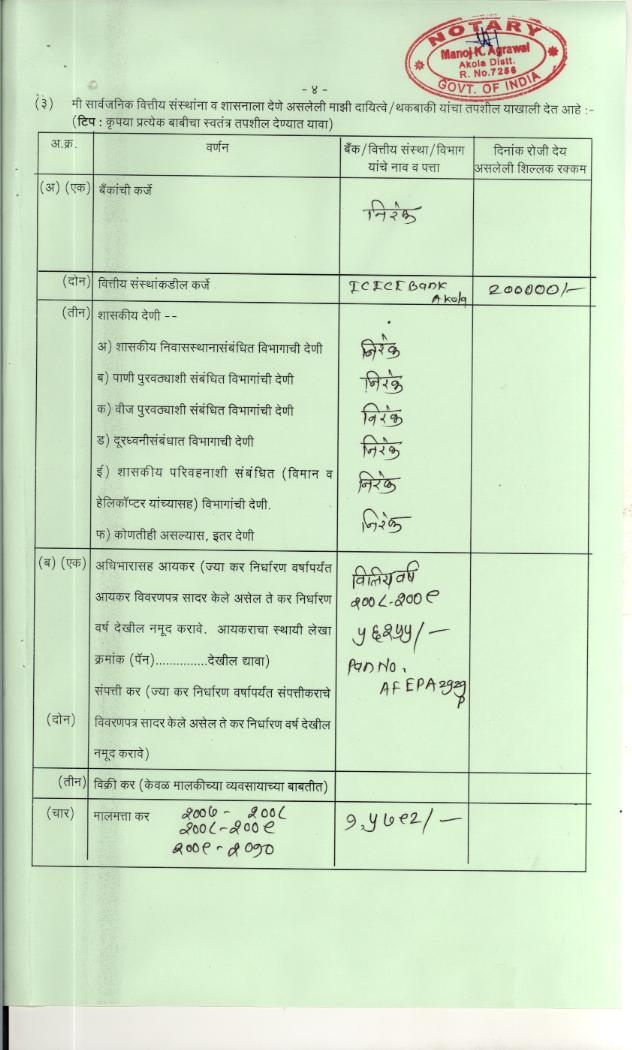 NOTARY
Manoj K. Agrawal
Akola Distt.
R. No.7256
GOVT. OF INDIA
- ४ -
(३) मी सार्वजनिक वित्तीय संस्थांना व शासनाला देणे असलेली माझी दायित्वे/थकबाकी यांचा तपशील याखाली देत आहे :-
(टिप : कृपया प्रत्येक बाबीचा स्वतंत्र तपशील देण्यात यावा)
अ.क्र. वर्णन बँक/वित्तीय संस्था/विभाग दिनांक रोजी देय
यांचे नाव व पत्ता असलेली शिल्लक रक्कम
(अ) (एक) बँकांची कर्जे
निरंक
(दोन) वित्तीय संस्थांकडील कर्जे ICICI Bank २०००००/-
Akola
(तीन) शासकीय देणी --
अ) शासकीय निवासस्थानासंबंधित विभागाची देणी निरंक
ब) पाणी पुरवठ्याशी संबंधित विभागांची देणी निरंक
क) वीज पुरवठ्याशी संबंधित विभागांची देणी निरंक
ड) दूरध्वनीसंबंधात विभागाची देणी निरंक
ई) शासकीय परिवहनाशी संबंधित (विमान व निरंक
हेलिकॉप्टर यांच्यासह) विभागांची देणी.
फ) कोणतीही असल्यास, इतर देणी निरंक
(ब) (एक) अधिभारासह आयकर (ज्या कर निर्धारण वर्षापर्यंत वित्तिय वर्ष
आयकर विवरणपत्र सादर केले असेल ते कर निर्धारण २००८-२००९
वर्ष देखील नमूद करावे. आयकराचा स्थायी लेखा ५६२५५/-
क्रमांक (पॅन)...............देखील द्यावा) Pan No.
संपत्ती कर (ज्या कर निर्धारण वर्षापर्यंत संपत्तीकराचे AFEPA2929
P
(दोन) विवरणपत्र सादर केले असेल ते कर निर्धारण वर्ष देखील
नमूद करावे)
(तीन) विक्री कर (केवळ मालकीच्या व्यवसायाच्या बाबतीत)
(चार) मालमत्ता कर २००७ - २००८ १,५७९२/-
२००८-२००९
२००९-२०१०